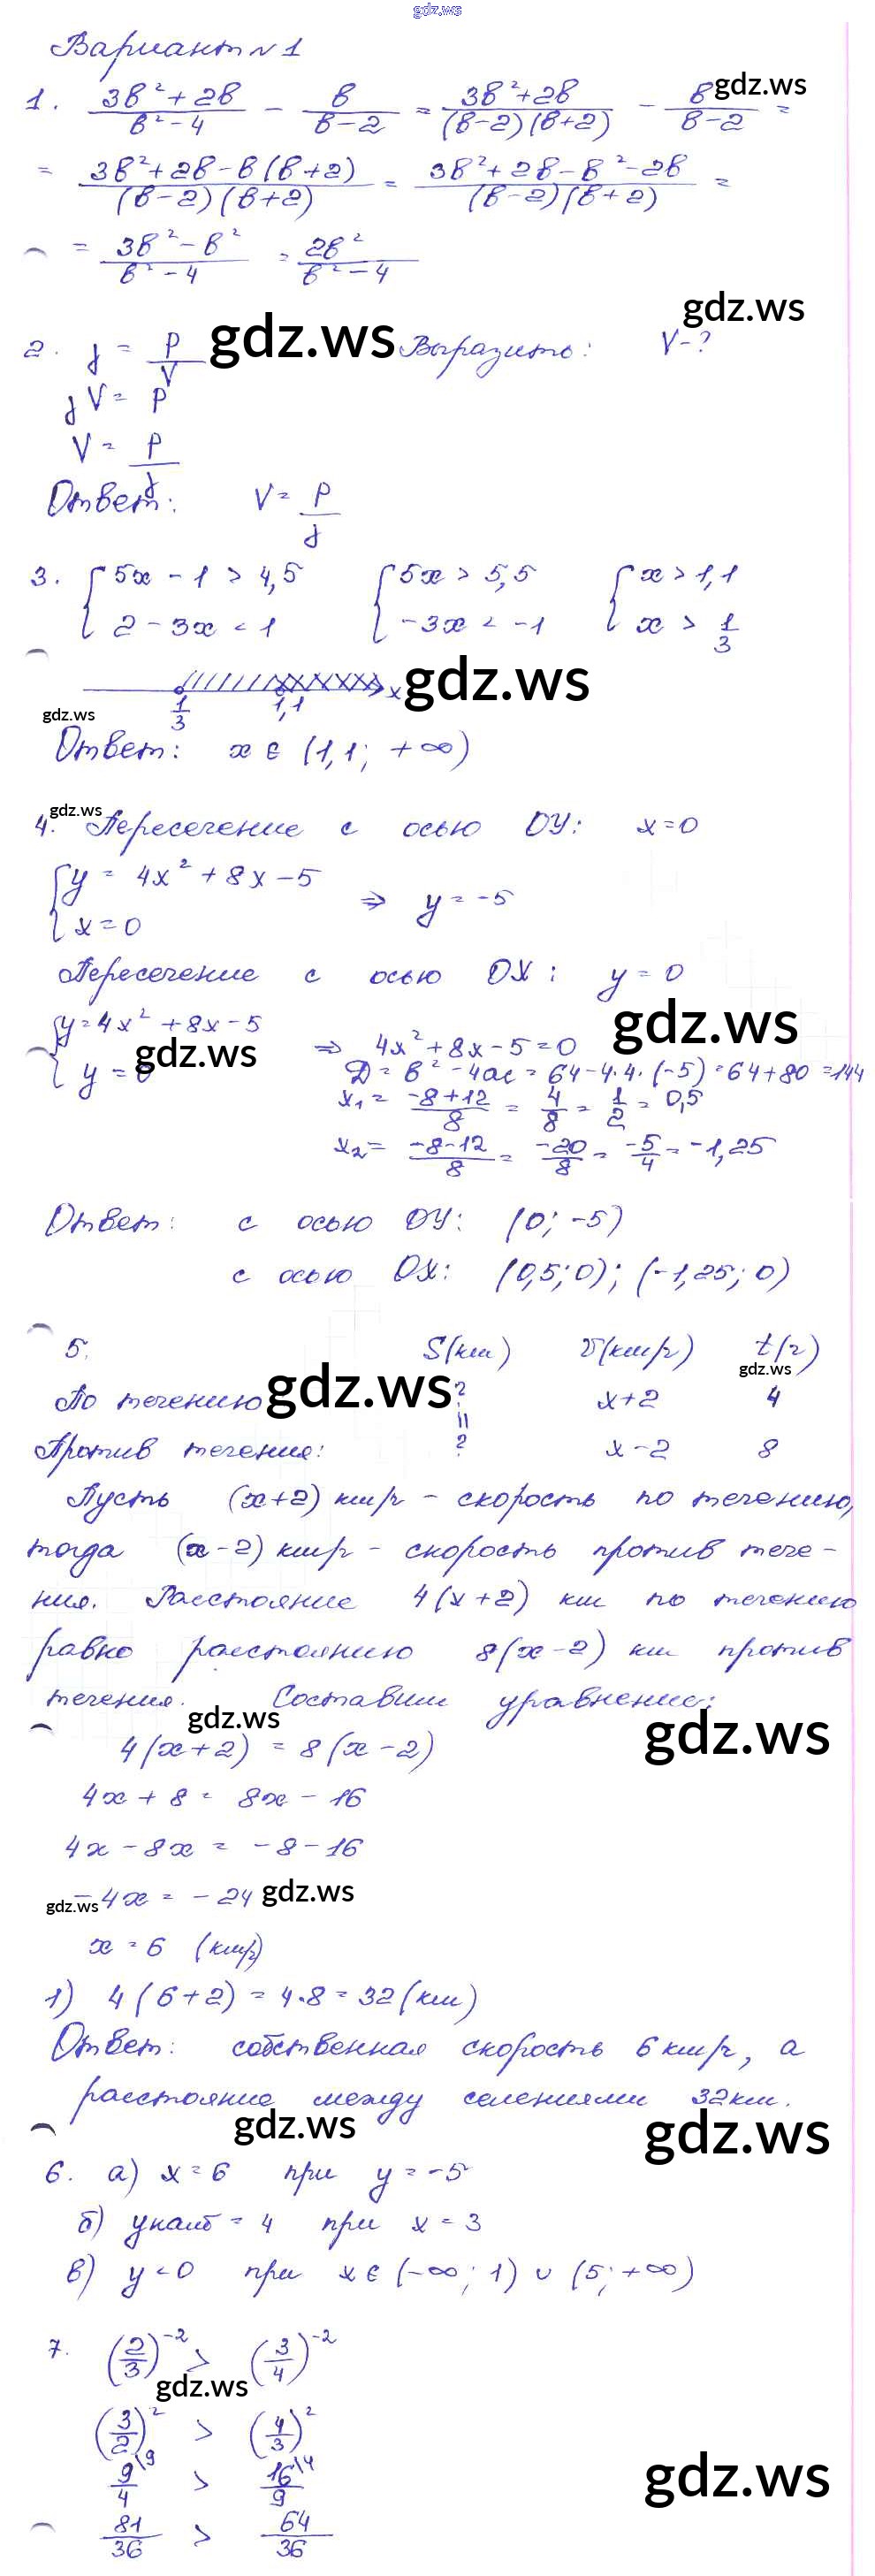 gdz.ws
Вариант №1
1. (3в²+2в)/(в²-4) - в/(в-2) = (3в²+2в)/((в-2)(в+2)) - в/(в-2) =
gdz.ws
= (3в²+2в-в(в+2))/((в-2)(в+2)) = (3в²+2в-в²-2в)/((в-2)(в+2)) =
= (3в²-в²)/(в²-4) = 2в²/(в²-4)
gdz.ws
2. j = P/V gdz.ws Выразить: V-?
jV = P
V = P/j
Ответ: V = P/j
3. { 5x-1 > 4,5 { 5x > 5,5 { x > 1,1
2-3x < 1 -3x < -1 x > 1/3
x gdz.ws
gdz.ws 1/3 1,1
Ответ: x ∈ (1,1; +∞)
gdz.ws
4. Пересечение с осью OY: x=0
{ y = 4x²+8x-5
x=0 ⇒ y = -5
Пересечение с осью OX: y = 0
gdz.ws
{ y=4x²+8x-5
y = 0 ⇒ 4x²+8x-5=0
gdz.ws
D = в²-4ac = 64-4·4·(-5) = 64+80 = 144
x₁ = (-8+12)/8 = 4/8 = 1/2 = 0,5
x₂ = (-8-12)/8 = -20/8 = -5/4 = -1,25
Ответ: с осью OY: (0; -5)
с осью OX: (0,5; 0); (-1,25; 0)
5. S(км) v(км/ч) t(ч)
gdz.ws
По течению gdz.ws ? x+2 4
=
Против течения: ? x-2 8
Пусть (x+2) км/ч - скорость по течению,
тогда (x-2) км/ч - скорость против тече-
ния. Расстояние 4(x+2) км по течению
равно расстоянию 8(x-2) км против
течения. Составим уравнение:
gdz.ws gdz.ws
4(x+2) = 8(x-2)
4x+8 = 8x-16
4x-8x = -8-16
gdz.ws -4x = -24 gdz.ws
x = 6 (км/ч)
1) 4(6+2) = 4·8 = 32 (км)
Ответ: собственная скорость 6 км/ч, а
расстояние между селениями 32 км.
gdz.ws gdz.ws
6. а) x = 6 при y = -5
б) y наиб = 4 при x = 3
в) y < 0 при x ∈ (-∞; 1) ∪ (5; +∞)
7. (2/3)⁻² > (3/4)⁻²
gdz.ws
(3/2)² > (4/3)²
9/4 \9 > 16/9 \4
gdz.ws
81/36 > 64/36